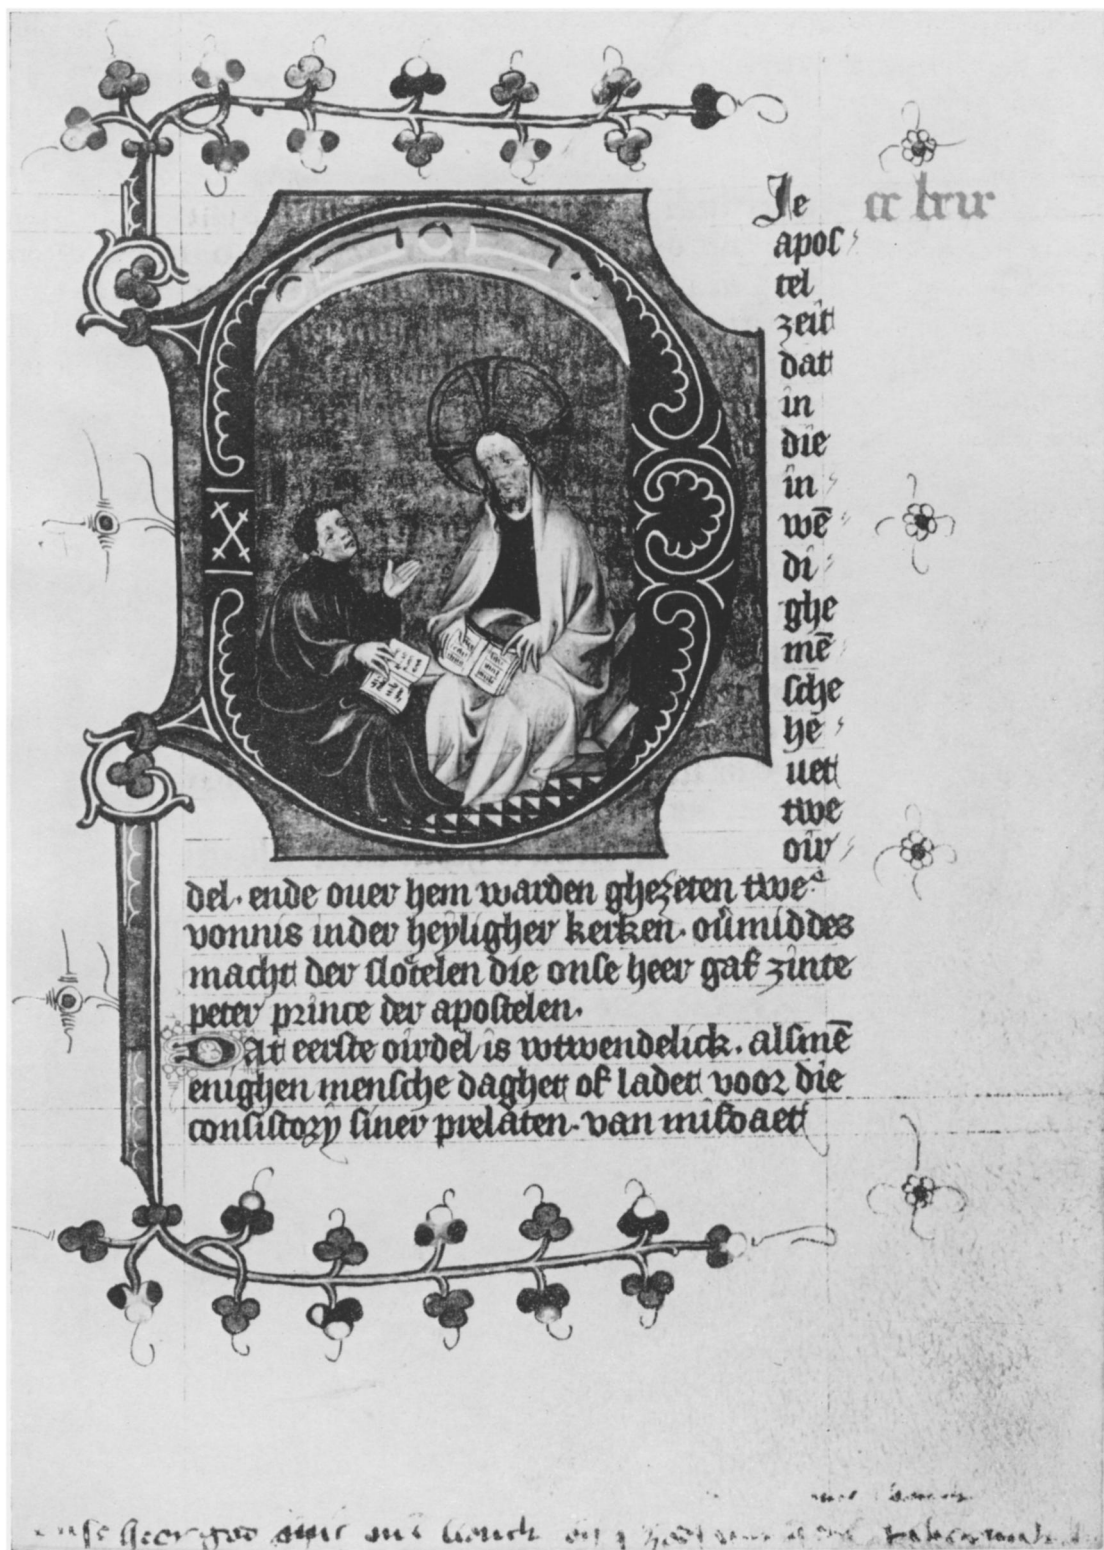 Ie
apos
tel
zeit
dat
in
die
in
wē
di
ghe
mē
sche
hē
uet
twe
oir
del. ende ouer hem warden ghezeten twe
vonnis inder heyligher kerken. ou̅middes
macht der slotelen die onse heer gaf zinte
peter prince der apostelen.
Dat eerste oirdel is wtwendelick. alsmē
enighen mensche daghet of ladet voor die
consistory siner prelaten. van misdaet
heer god